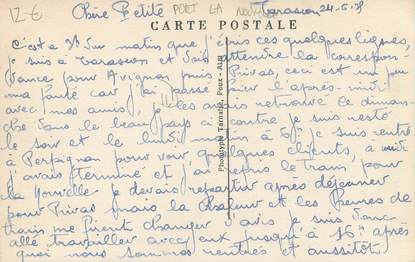 12€ Chère Petite PORT LA NOUVELLE Tarascon 24-6-38
CARTE POSTALE
C'est a 3h du matin que j'écris ces quelques lignes,
je suis à Tarascon et dois attendre la correspon-
dance pour Avignon puis Privas, ceci est un peu
ma faute car j'ai passé l'après-midi
avec mes amis, je les avais retrouvé le diman-
che dans le beau pays ci contre je suis resté
le soir et le lundi matin à 6h je suis rentré
à Perpignan pour voir quelques clients, à midi
j'avais terminé et j'ai repris le Train, pour
La Nouvelle je devais repartir après déjeuner
pour Privas mais la chaleur et les heures de
trains me firent changer d'avis je suis donc
allé travailler avec eux jusqu'à 16h après
quoi nous sommes rentrés et aussitôt
Phototypie Tarnaise, Poux - Albi